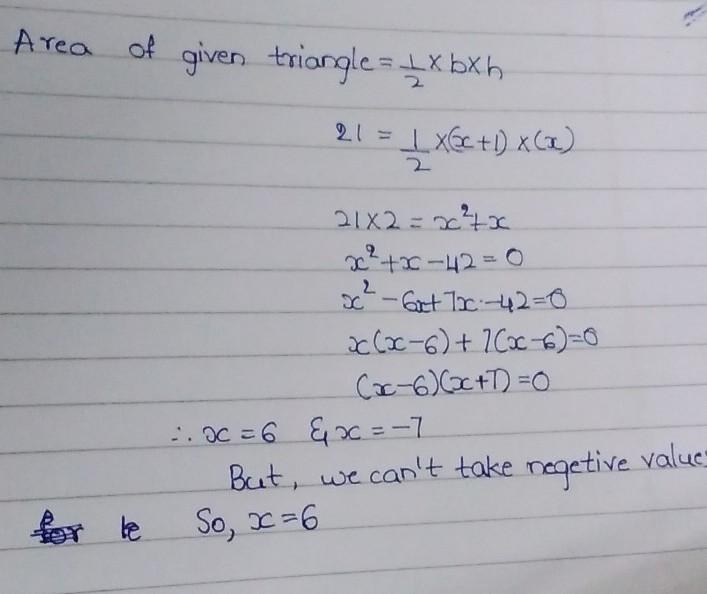 Area of given triangle = 1/2 × b × h
21 = 1/2 × (x+1) × (x)
21×2 = x²+x
x²+x-42=0
x²-6x+7x-42=0
x(x-6)+7(x-6)=0
(x-6)(x+7)=0
∴ x=6 & x=-7
But, we can't take negetive value
So, x=6